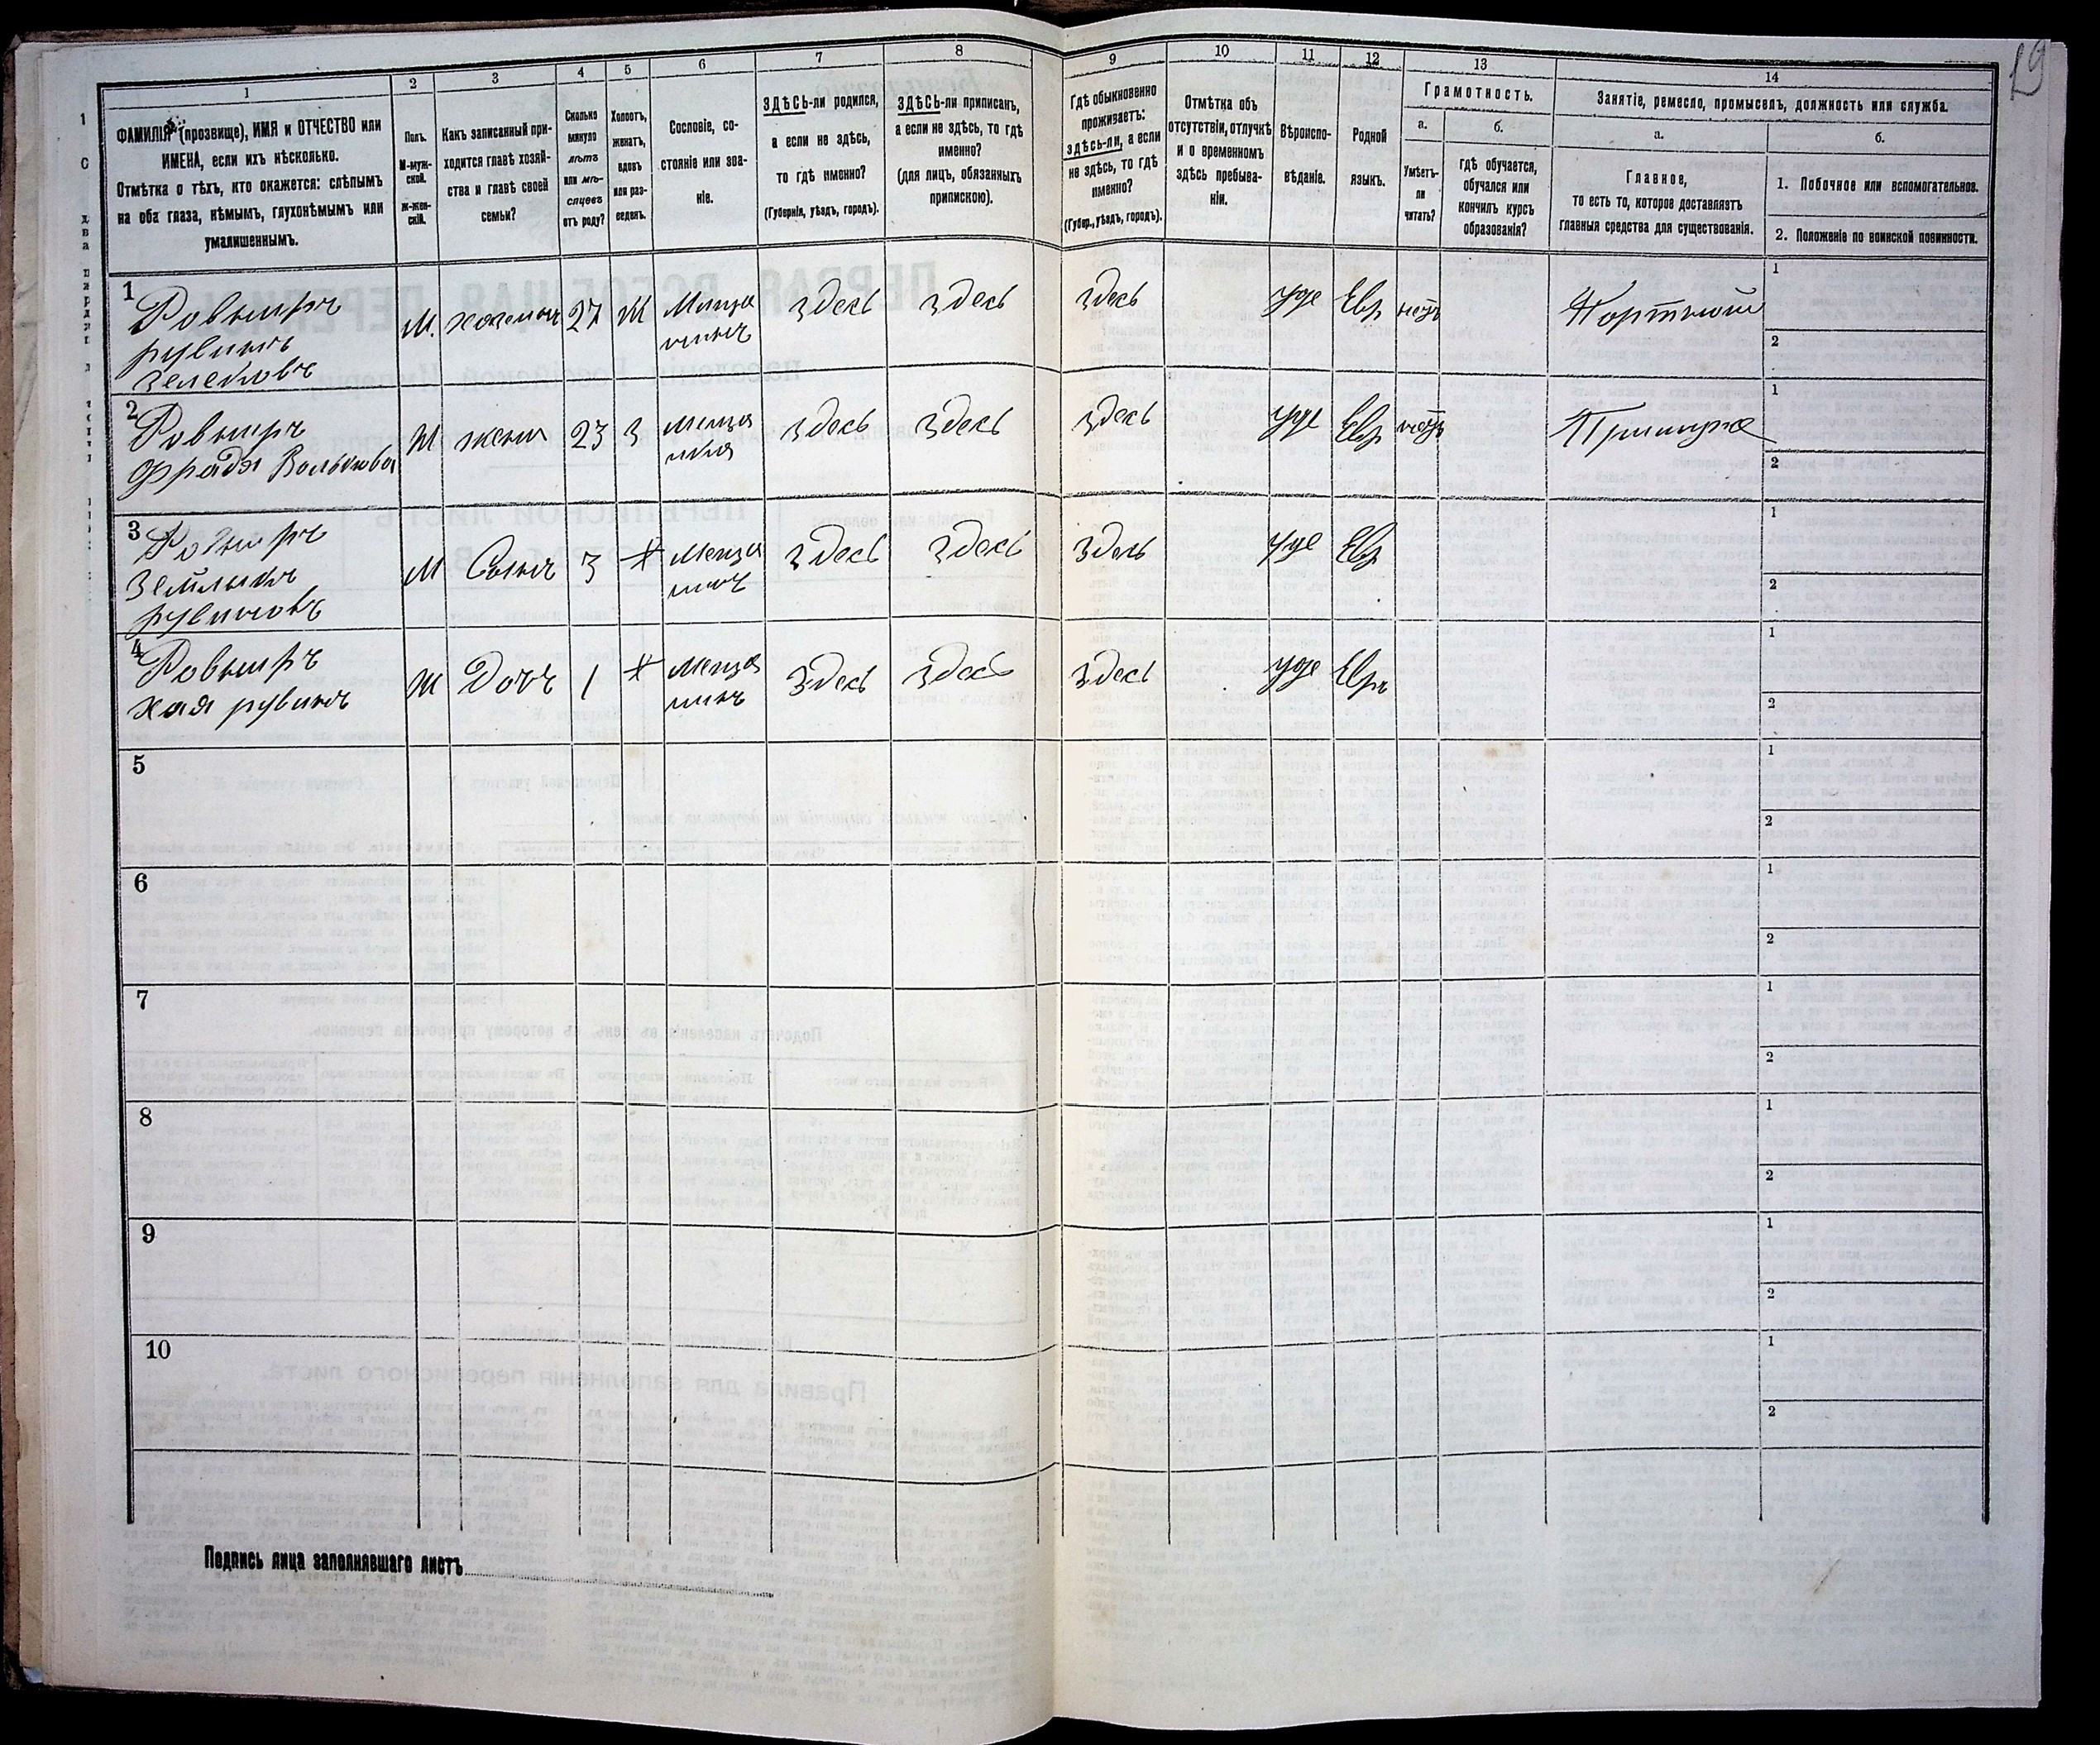 19
1
2
3
4
5
6
7
8
9
10
11
12
13
14
ФАМИЛІЯ (прозвище), ИМЯ и ОТЧЕСТВО или
ИМЕНА, если ихъ нѣсколько.
Отмѣтка о тѣхъ, кто окажется: слѣпымъ
на оба глаза, нѣмымъ, глухонѣмымъ или
умалишеннымъ.
Полъ.
М-муж-
ской.
Ж-жен-
скій.
Какъ записанный при-
ходится главѣ хозяй-
ства и главѣ своей
семьи?
Сколько
минуло
лѣтъ
или мѣ-
сяцевъ
отъ роду?
Холостъ,
женатъ,
вдовъ
или раз-
веденъ.
Сословіе, со-
стояніе или зва-
ніе.
ЗДѢСЬ-ли родился,
а если не здѣсь,
то гдѣ именно?
(Губернія, уѣздъ, городъ).
ЗДѢСЬ-ли приписанъ,
а если не здѣсь, то гдѣ
именно?
(для лицъ, обязанныхъ
припискою).
Гдѣ обыкновенно
проживаетъ:
здѣсь-ли, а если
не здѣсь, то гдѣ
именно?
(Губер., уѣздъ, городъ).
Отмѣтка объ
отсутствіи, отлучкѣ
и о временномъ
здѣсь пребыва-
ніи.
Вѣроиспо-
вѣданіе.
Родной
языкъ.
Грамотность.
а.
Умѣетъ-
ли
читать?
б.
гдѣ обучается,
обучался или
кончилъ курсъ
образованія?
Занятіе, ремесло, промыселъ, должность или служба.
а.
Главное,
то есть то, которое доставляетъ
главныя средства для существованія.
б.
1. Побочное или вспомогательное.
2. Положеніе по воинской повинности.
1
Ровниръ
рувинъ
Зелековъ
М. хозяинъ 27 Ж Меща
нинъ
здесь здесь здесь Iуде Евр нетъ Портной
1
2
2
Ровниръ
Фрадя Волькова
Ж жена 23 З меща
нка
здесь здесь здесь Iуде Евр нетъ При мужѣ
1
2
3
Ровниръ
рувиновъ
М Сынъ 3 Х меща
нинъ
здесь здесь здесь Iуде Евр
1
2
4
Ровниръ
хая рувинъ
Ж Дочъ 1 Х меща
нинъ
здесь здесь здесь Iуде Евръ
1
2
5
1
2
6
1
2
7
1
2
8
1
2
9
1
2
10
1
2
Подпись лица заполнявшаго листъ